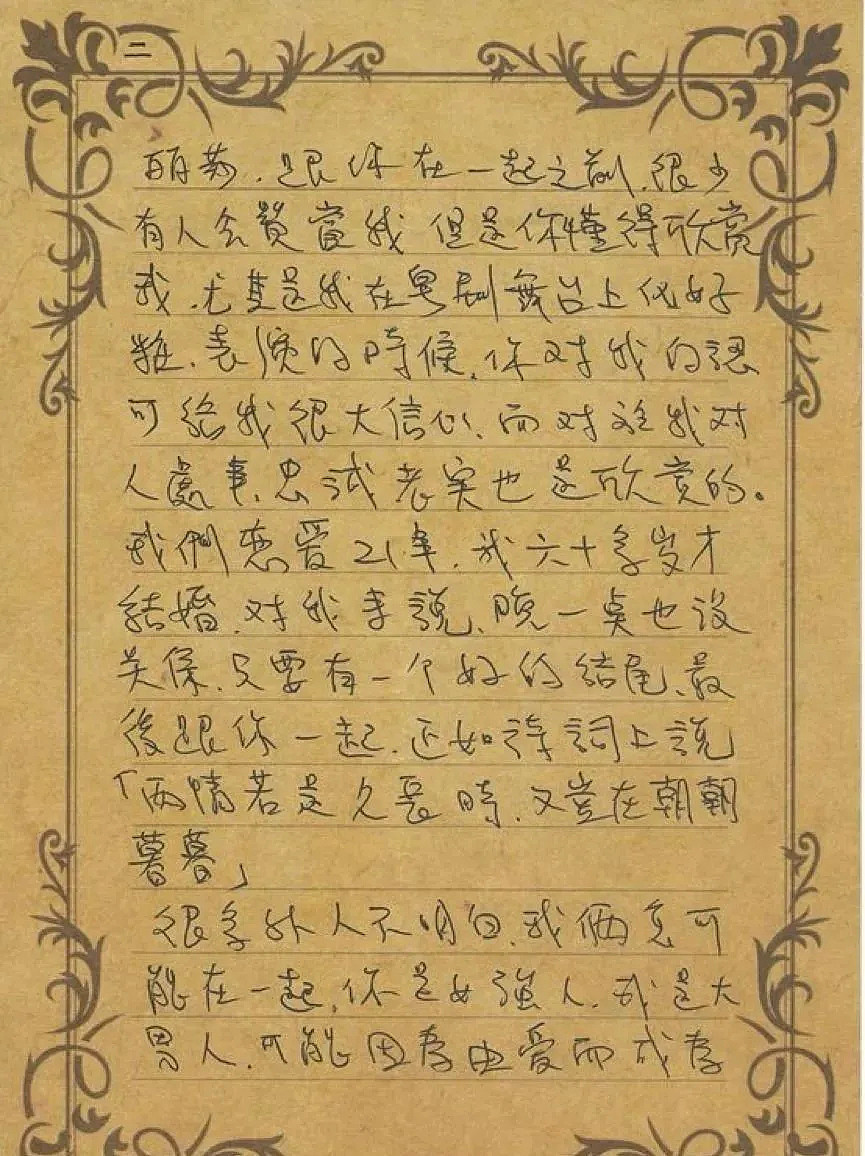 二
丽莎.跟你在一起之前.很少
有人会贊賞我 但是你懂得欣赏
我.尤其是我在粤剧舞台上化好
粧.表演的時候.你对我的認
可給我很大信心.而对於我对
人處事.忠誠老实也是欣赏的。
我們恋爱21年.我六十多岁才
結婚.对我来說.晚一点也没
关係.只要有一个好的結尾.最
後跟你一起.正如詩詞上說
「两情若是久長時.又豈在朝朝
暮暮」
很多外人不明白.我倆怎可
能在一起.你是女強人.我是大
男人.可能因为由爱而成为